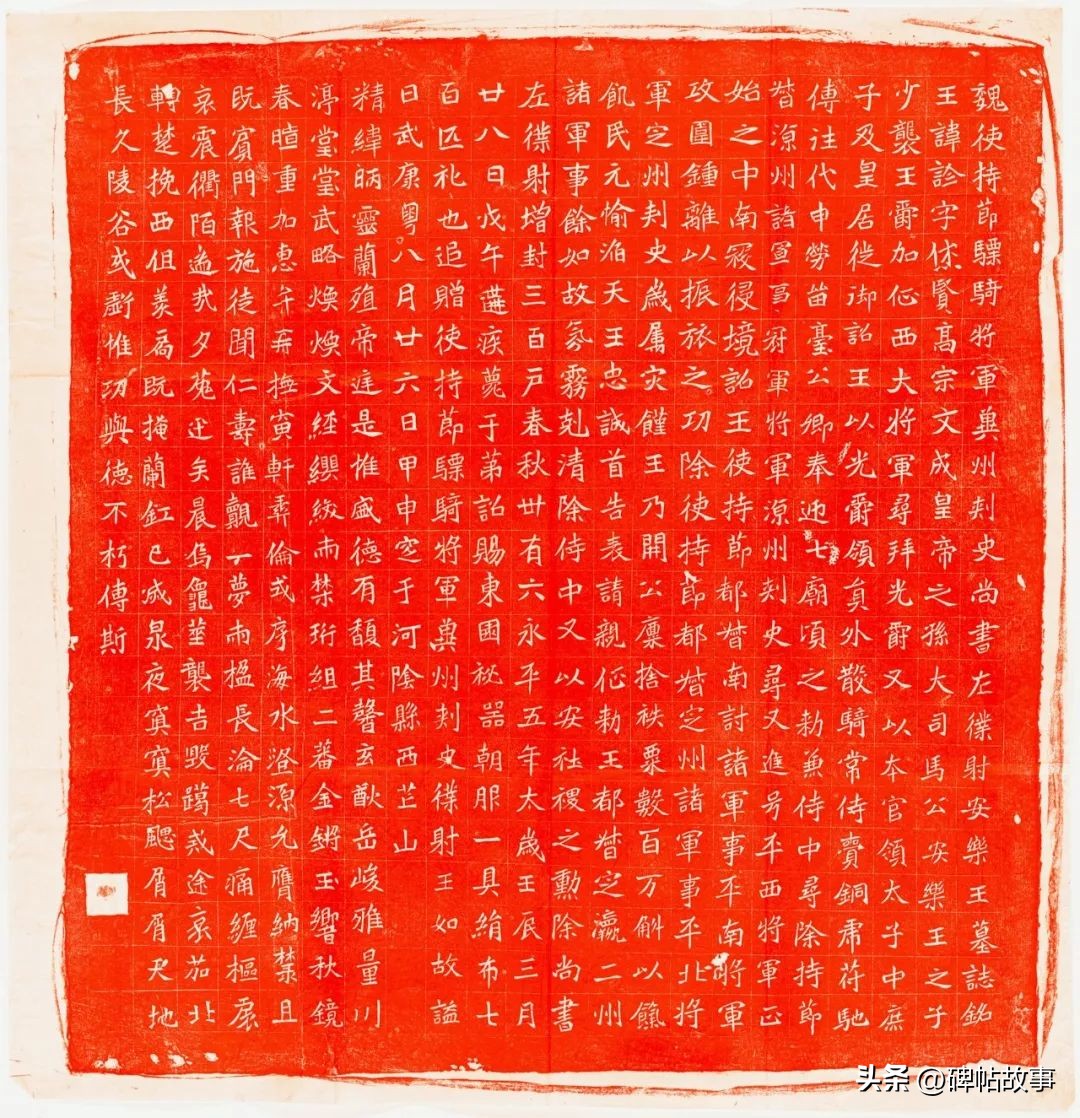 魏使持節驃騎將軍兾州刾史尚書左僕射安樂王墓誌銘
王諱詮字休賢髙宗文成皇帝之孫大司馬公安樂王之子
少襲王爵加征西大將軍尋拜光爵又以本官領太子中庶
子及皇居徙御詔王以光爵領員外散騎常侍賫銅虎苻馳
傅往代申勞留臺公卿奉迎七廟頃之勑兼侍中尋除持節
督涼州諸軍事冠軍將軍涼州刾史尋又進号平西將軍正
始之中南寇侵境詔王使持節都督南討諸軍事平南將軍
攻圍鍾離以振旅之功除使持節都督定州諸軍事平北將
軍定州刾史歲属灾饉王乃開公廩捨秩粟數百万斛以餼
飢民元愉滔天王忠誠首告表請親征勑王都督定瀛二州
諸軍事餘如故氛霧剋清除侍中又以安社禝之勳除尚書
左僕射增封三百戶春秋卅有六永平五年太歲壬辰三月
廿八日戊午遘疾薨于第詔賜東園祕器朝服一具絹布七
百匹礼也追贈使持節驃騎將軍兾州刾史僕射王如故謚
曰武康粵八月廿六日甲申窆于河陰縣西芒山
精緯昞靈蘭殖帝庭是惟盛德有馥其馨玄猷岳峻雅量川
渟堂堂武略煥煥文經纓紱兩禁珩組二蕃金鏘玉響秋鏡
春暄重加惠弁再撫寅軒彝倫或序海水澄源允膺納揆且
既賓門報施徒聞仁壽誰覿一夢兩楹長淪七尺痛纏樞扆
哀震衢陌遙哉夕菟迅矣晨烏龜筮襲吉毀躅戒途哀茄北
轉楚挽西徂羨扃既掩蘭釭已滅泉夜寘寘松颸屑屑天地
長久陵谷或虧惟功與德不朽傳斯
头条 @碑帖故事